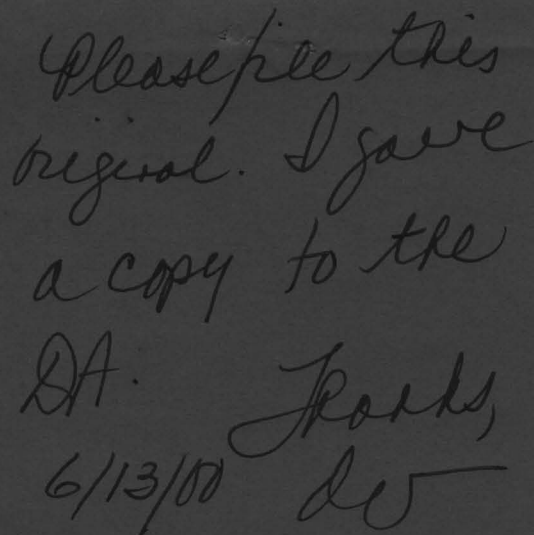 Please file this
original. I gave
a copy to the
DA. Thanks,
6/13/00